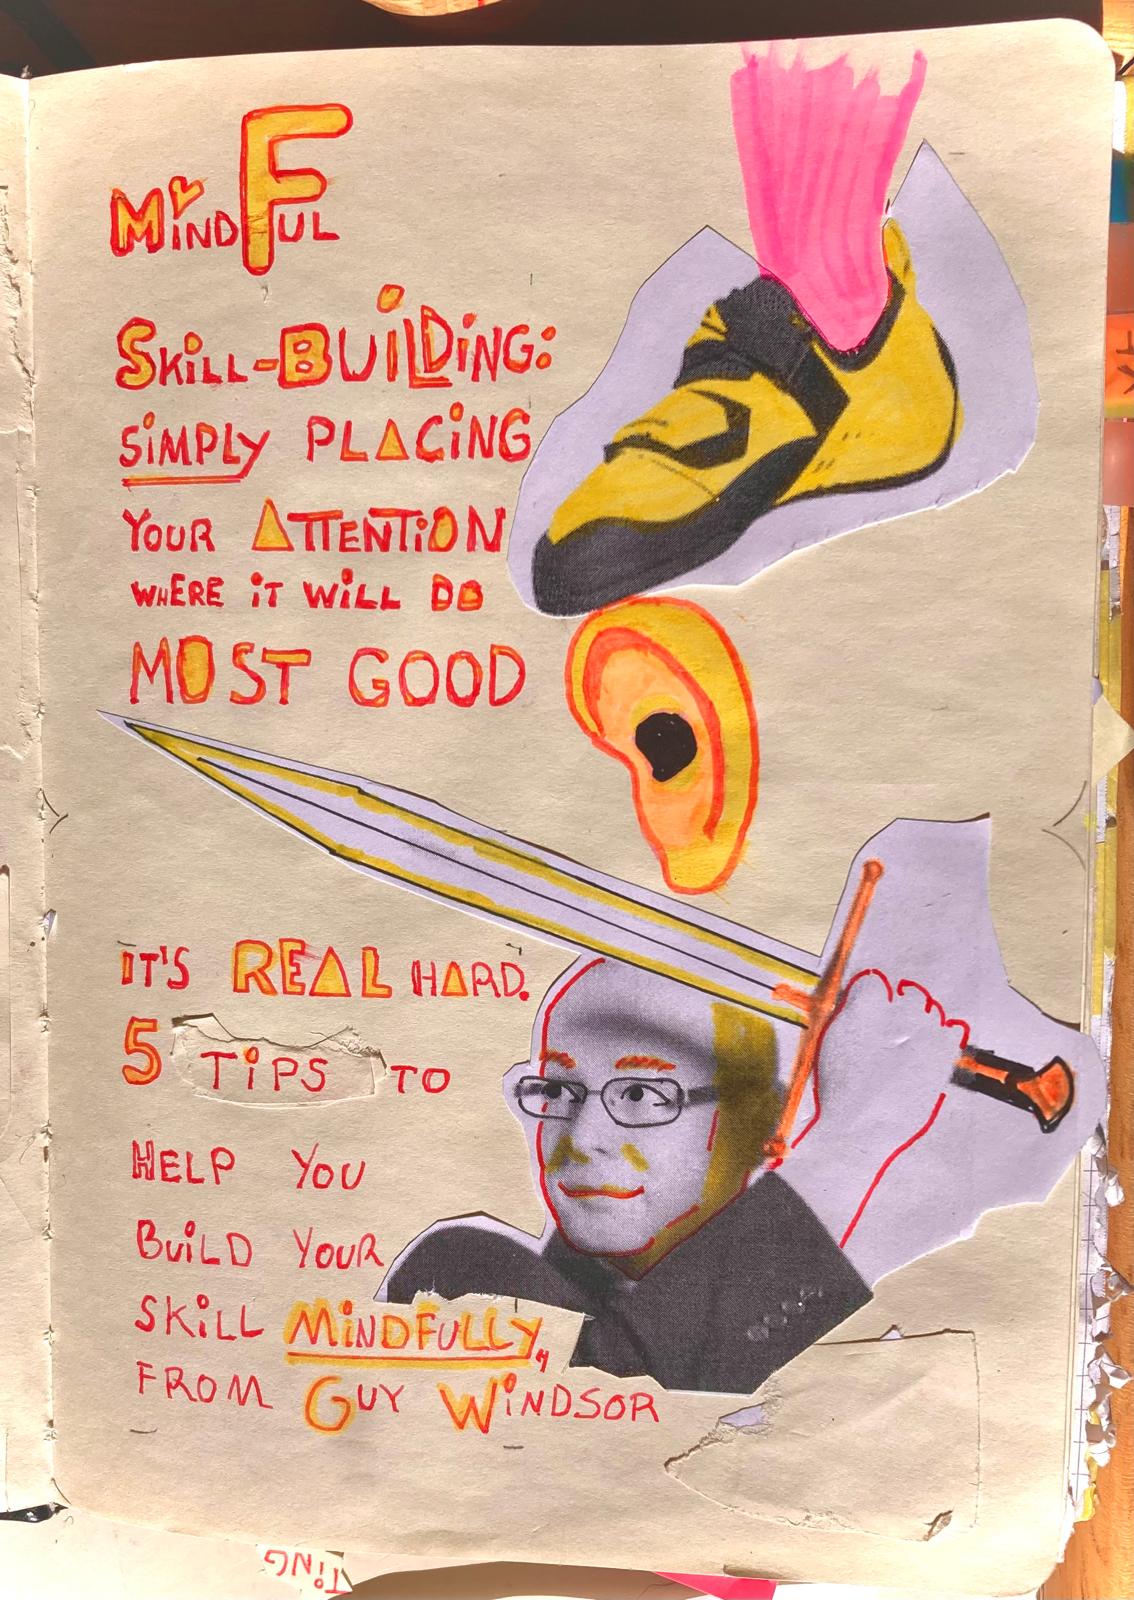 MiNDFUL
SKiLL-BUiLDiNG:
SiMPLY PLACiNG
YOUR ATTENTiON
WHERE iT WiLL DO
MOST GOOD
iT'S REAL HARD.
5 TiPS TO
HELP YOU
BUiLD YOUR
SKiLL MiNDFULLY,
FROM GUY WiNDSOR
TiNG